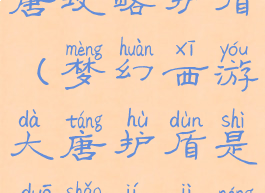 唐攻略护盾
mèng huàn xī yóu
（梦幻西游
dà táng hù dùn shì
大唐护盾是
duō shǎo jí jì néng